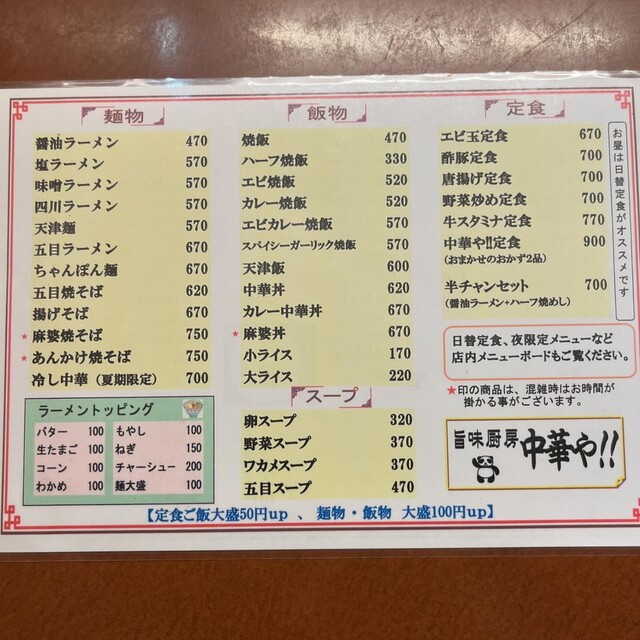 麺物
醤油ラーメン 470
塩ラーメン 570
味噌ラーメン 570
四川ラーメン 570
天津麺 570
五目ラーメン 670
ちゃんぽん麺 670
五目焼そば 620
揚げそば 670
★麻婆焼そば 750
★あんかけ焼そば 750
冷し中華（夏期限定） 700
ラーメントッピング
バター 100 もやし 100
生たまご 100 ねぎ 150
コーン 100 チャーシュー 200
わかめ 100 麺大盛 100
飯物
焼飯 470
ハーフ焼飯 330
エビ焼飯 520
カレー焼飯 520
エビカレー焼飯 570
スパイシーガーリック焼飯 570
天津飯 600
中華丼 620
カレー中華丼 670
★麻婆丼 670
小ライス 170
大ライス 220
スープ
卵スープ 320
野菜スープ 370
ワカメスープ 370
五目スープ 470
定食
エビ玉定食 670
酢豚定食 700
唐揚げ定食 700
野菜炒め定食 700
牛スタミナ定食 770
中華や!!定食 900
(おまかせのおかず2品)
半チャンセット 700
(醤油ラーメン+ハーフ焼めし)
お昼は日替定食がオススメです
日替定食、夜限定メニューなど
店内メニューボードもご覧ください。
★印の商品は、混雑時はお時間が
掛かる事がございます。
旨味厨房
中華や!!
【定食ご飯大盛50円up 、 麺物・飯物 大盛100円up】